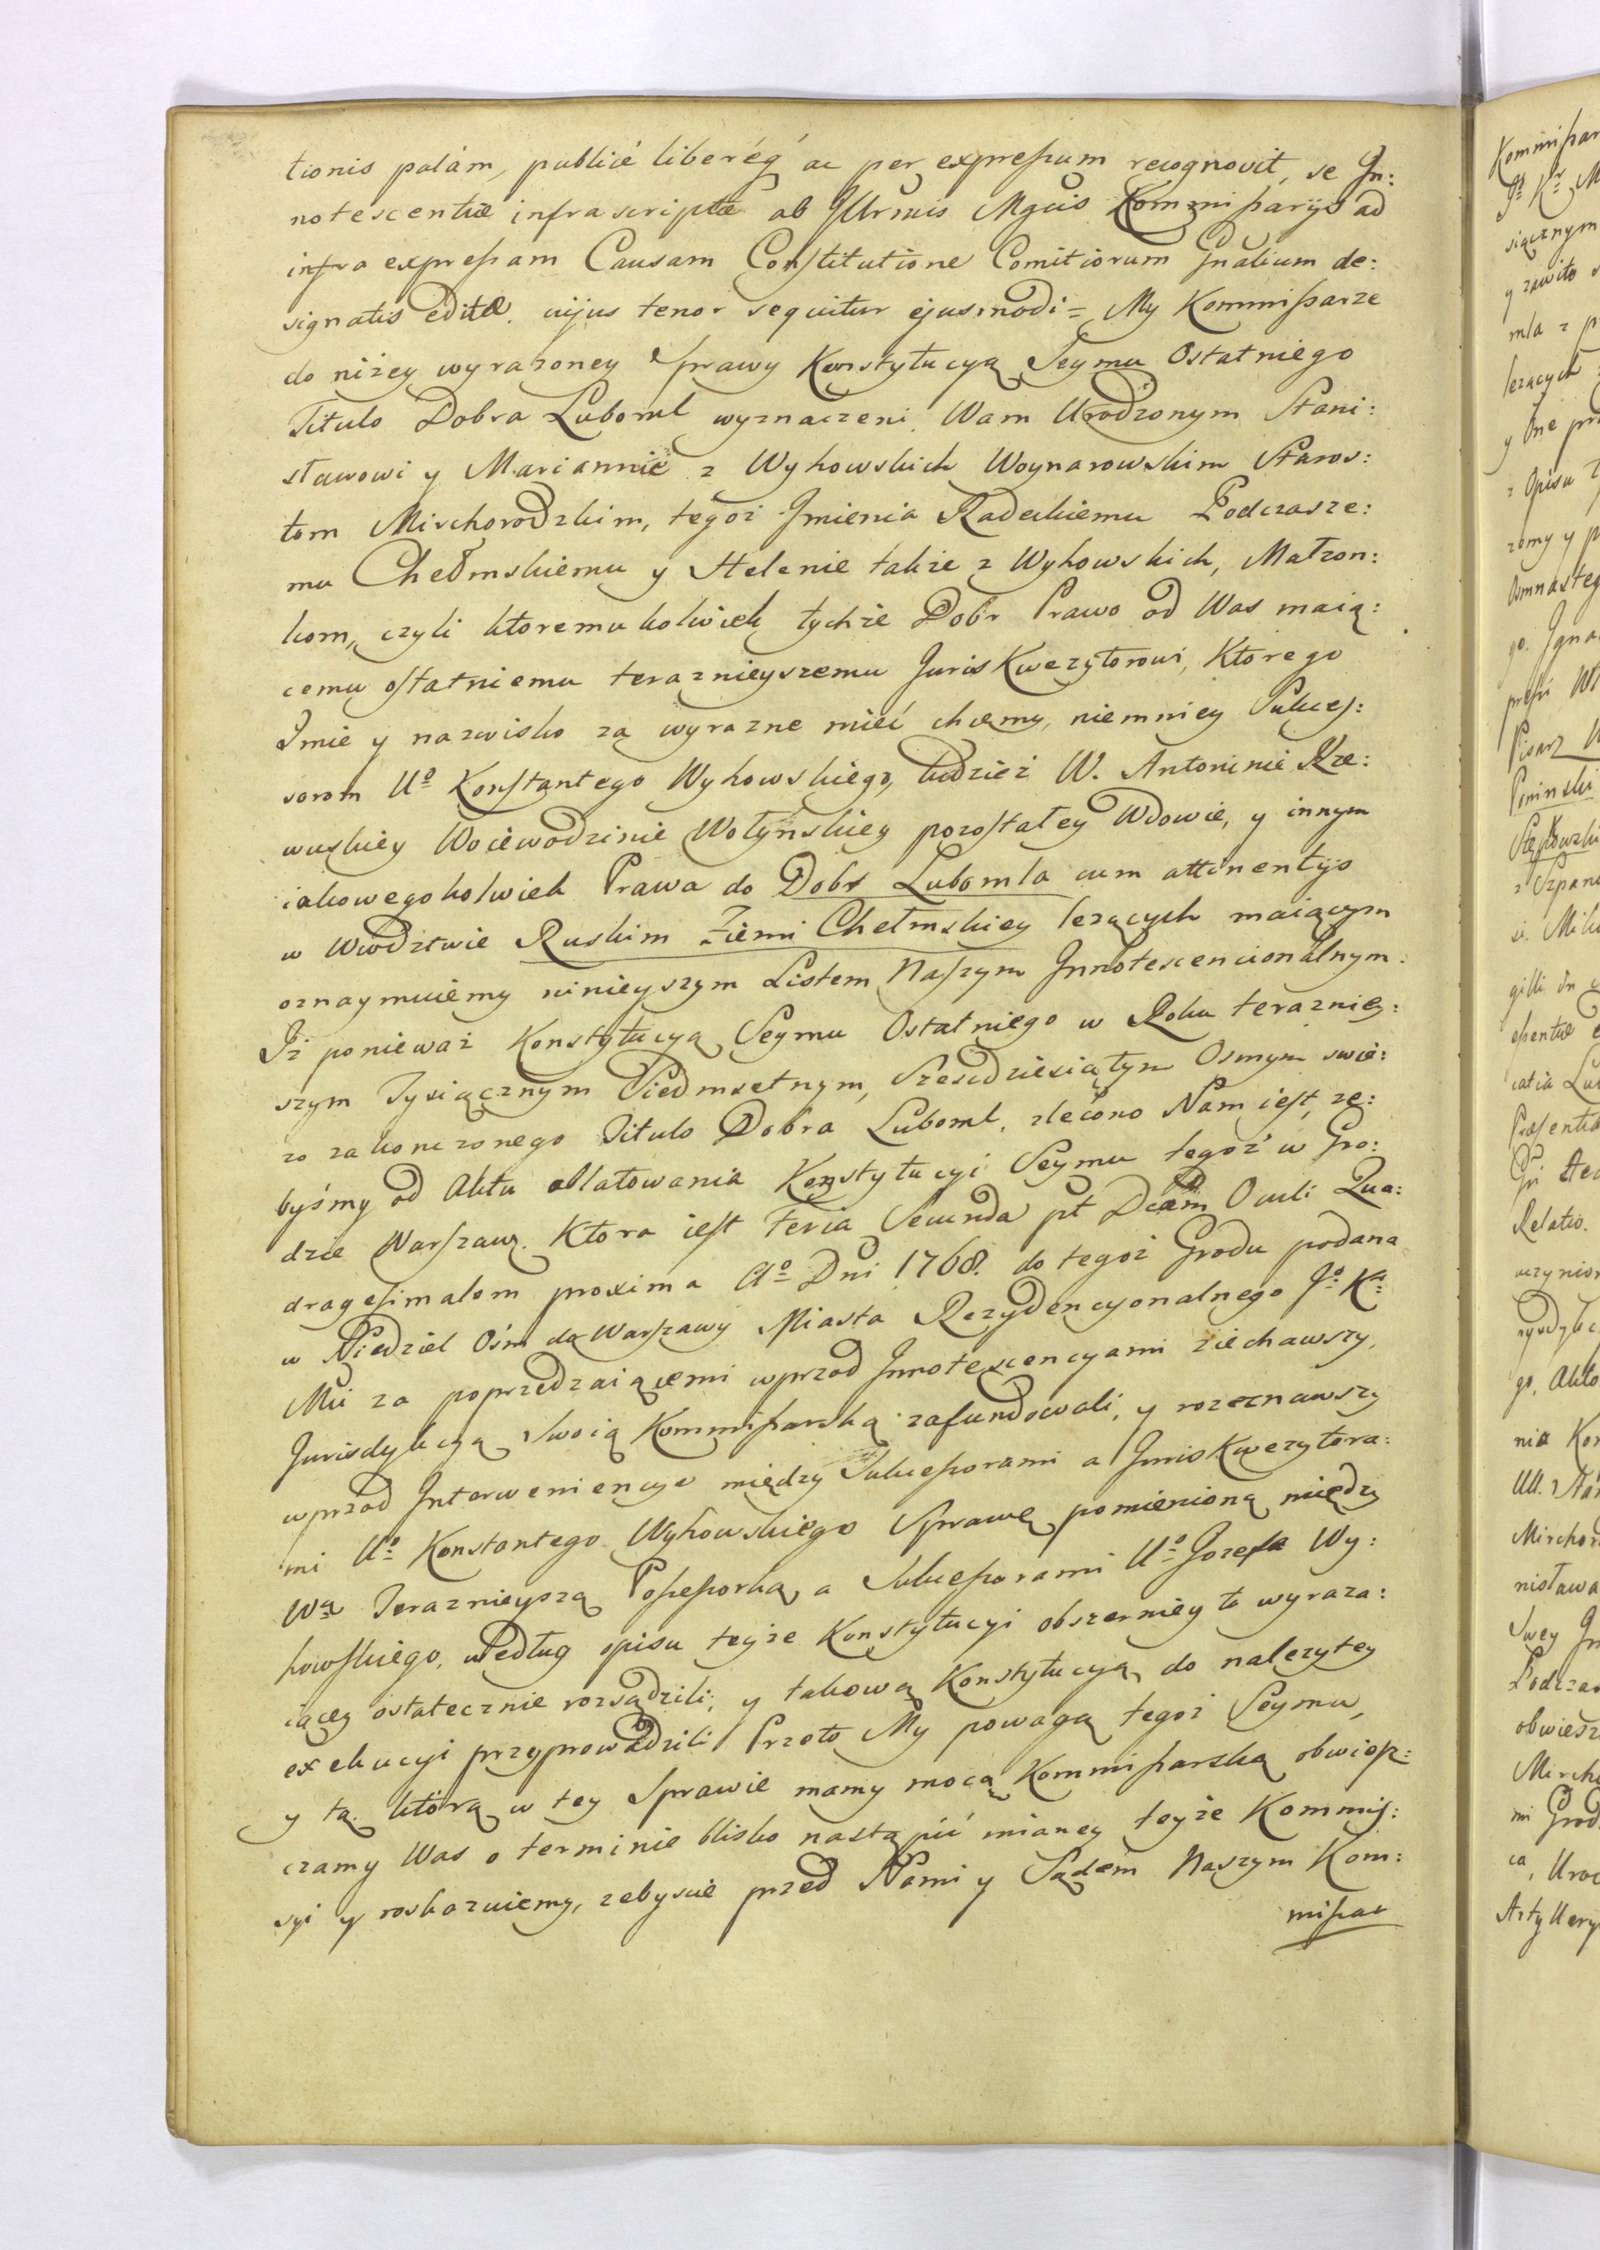 tionis palàm, publicé liberég ac per expressum recognovit, se In:
notescentiæ infrascriptæ ab Illrmis Mgcis Kommissarijs ad
infra expressam Causam Constitutione Comitiorum Gnalium de:
signatis editæ. cujus tenor sequitur ejusmodi = My Kommissarze
do niżey wyrażoney Sprawy Konstytucyą Seymu Ostatniego
Titulo Dobra Luboml wyznaczeni. Wam Urodzonym Stani:
sławowi y Mariannie z Wyhowskich Woynarowskim Staros:
tom Mirchorodzkim, tegoż Imienia Radeckiemu Podczasze:
mu Chełmskiemu y Helenie także z Wyhowskich, Małżon:
kom, czyli ktoremukolwiek tychże Dobr Prawo od Was maią:
cemu ostatniemu teraznieyszemu JurisKwezytorowi, Ktorego
Imie y nazwisko za wyrazne mieć chcemy, niemniey Sukces:
sorom Uo Konstantego Wyhowskiego, tudzież W. Antoninie Rze:
wuskiey Woiewodzinie Wołynskiey pozostałey Wdowie, y innym
iakowegokolwiek Prawa do Dobr Lubomla cum attinentijs
w Wwodztwie Ruskim Ziemi Chełmskiey leżących maiącym
oznaymuiemy ninieyszym Listem Naszym Innotescencionalnym.
Iż ponieważ Konstytucyą Seymu Ostatniego w Roku teraznie:
szym Tysiącznym Siedmsetnym, Szescdziesiątym Osmym swie:
zo zakonczonego Titulo Dobra Luboml. zlecono Nam iest, że:
byśmy od Aktu oblatowania Konstytucyi Seymu tegoż w Gro:
dzie Warszaw. Ktora iest Feria Secunda pt Dcam Oculi Qua:
dragesimalem proxima Ao Dni 1768. do tegoż Grodu podana
w Niedziel Ośm do Warszawy Miasta Rezydencyonalnego Jo Kr
Mci za poprzedzaiącemi wprzod Innotescencyami ziechawszy,
Jurisdykcyą Swoią Kommissarską zafundowali, y rozeznawszy
wprzod Interweniencye między Sukcessorami a JurisKwezytora:
mi Uo Konstantego Wyhowskiego Sprawę pomienioną między
Wą Teraznieyszą Possessorką, a Sukcessorami Uo Jozefa Wy:
howskiego, według opisu teyże Konstytucyi obszerniey to wyraża:
iącey ostatecznie rozsądzili; y takową Konstytucyą do należytey
exekucyi przyprowadzili Przeto My powagą tegoż Seymu,
y tą. ktorą w tey Sprawie mamy mocą Kommissarską obwiesz:
czamy Was o terminie blisko nastąpić mianey teyże Kommis:
syi y roskazuiemy, żebyscie przed Nami y Sądem Naszym Kom:
missar